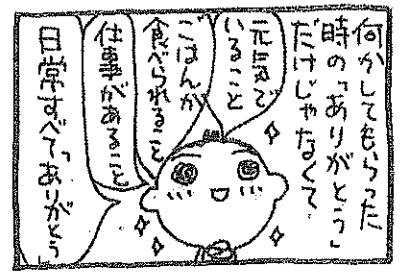 何かしてもらった
時の「ありがとう」
だけじゃなくて
元気で
いること
ごはんが
食べられること
仕事があること
日常すべて「ありがとう」